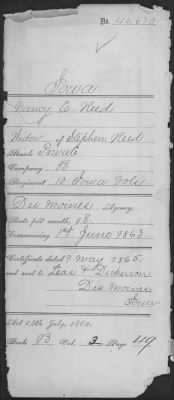 No. 46.620
Iowa
Nancy E. Reed
Widow of Stephen Reed
Rank Private
Company B
Regiment 10 Iowa Vols
Des Moines Agency.
Rate per month, $8
Commencing 14 June 1863
Certificate dated 9 May 1865
and sent to Leas & Dickerson
Des Moines
Iowa
Act 14th July, 1862.
Book B Vol. 2 Page 49